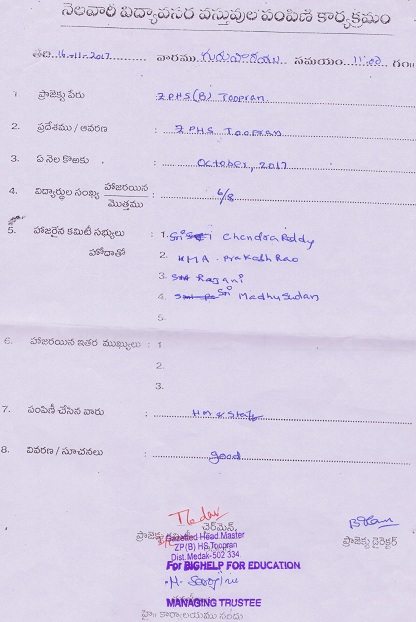 నెలవారీ విద్యావసర వస్తువుల పంపిణీ కార్యక్రమం
తేది 16-11-2017 వారము గురువారము సమయం 11:00 గం॥
1 ప్రాజెక్టు పేరు : ZPHS(B) Toopran
2. ప్రదేశము / ఆవరణ : ZPHS Toopran
3. ఏ నెల కొఱకు : October, 2017
4. విద్యార్థుల సంఖ్య హాజరయిన / మొత్తము : 6/8
5. హాజరైన కమిటీ సభ్యులు : 1. Sri Chendra Reddy
హోదాతో 2. HMA. Prakash Rao
3. Rajani
4. Sri Madhusudan
5.
6. హాజరయిన ఇతర ముఖ్యులు : 1
2.
3.
7. పంపిణీ చేసిన వారు : HM & Staff
8. వివరణ / సూచనలు : good
ప్రాజెక్టు చైర్మెన్ ప్రాజెక్టు డైరెక్టర్
Gazetted Head Master
ZP(B) HS Toopran
Dist. Medak-502 334.
For BIGHELP FOR EDUCATION
MANAGING TRUSTEE